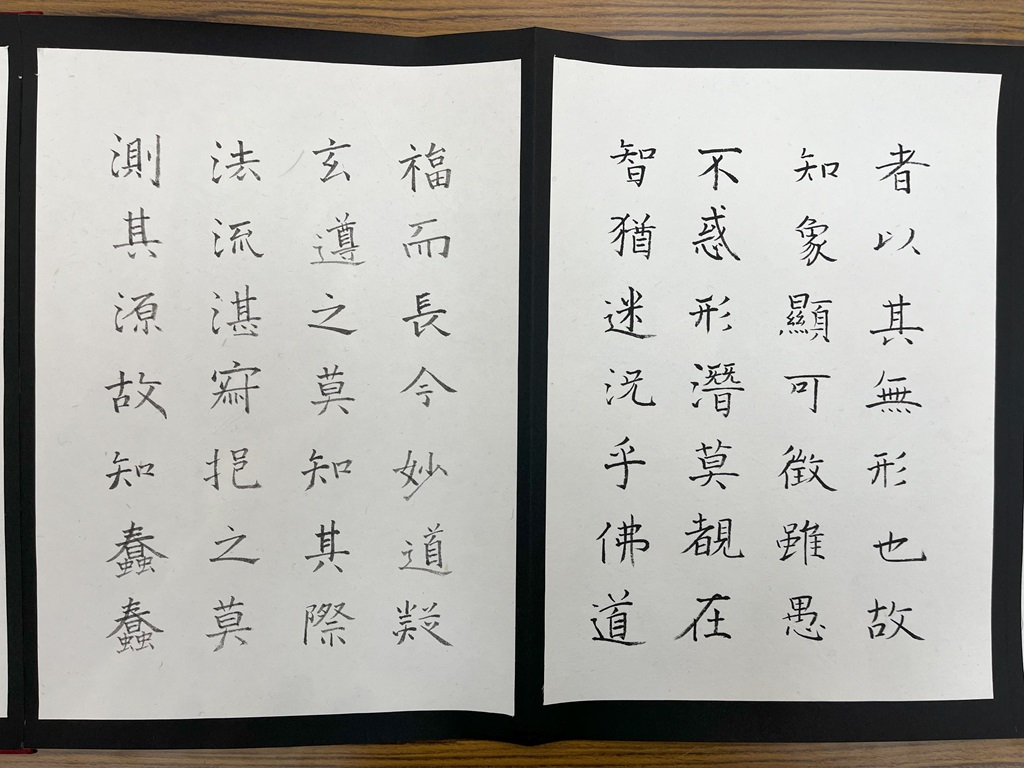 者以其無形也故
知象顯可徵雖愚
不惑形潛莫覩在
智猶迷況乎佛道
福而長今妙道凝
玄遵之莫知其際
法流湛寂挹之莫
測其源故知蠢蠢